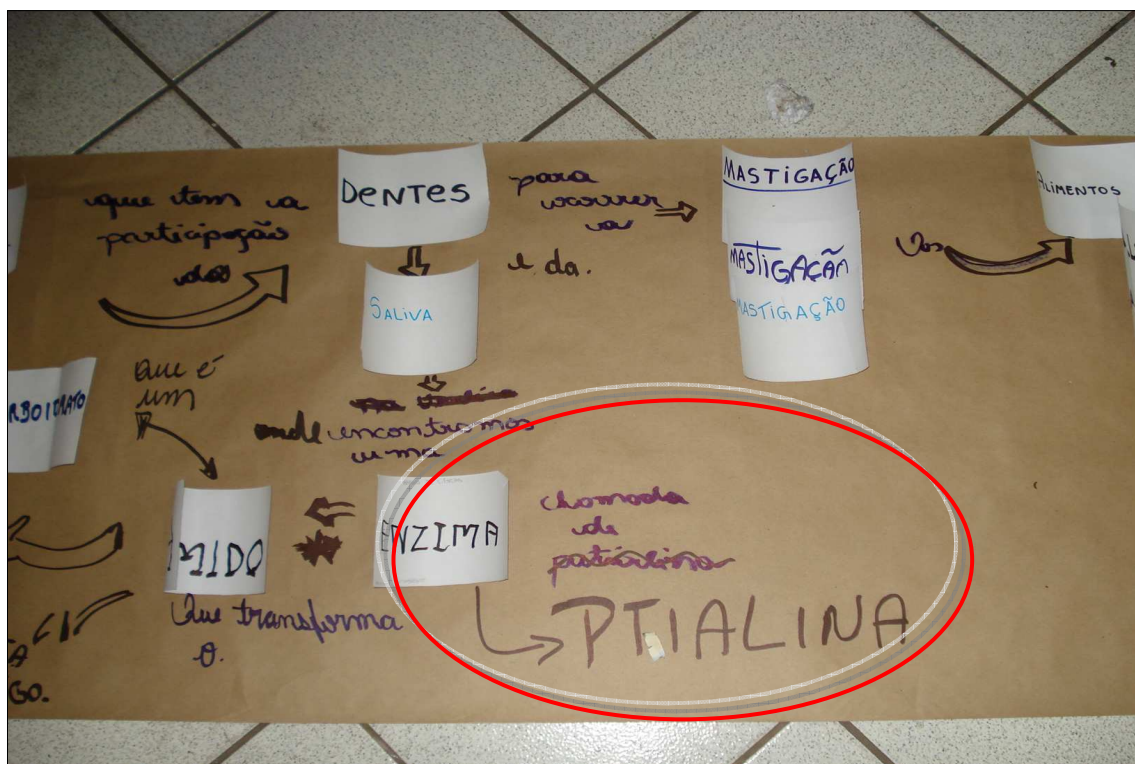 que tem a
participação
das
DENTES
para
ocorrer
a
MASTIGAÇÃO
MASTIGAÇÃO
MASTIGAÇÃO
Dos
ALIMENTOS
e da.
SALIVA
Que é
um
RBOIDRATO
onde encontramos
uma
MIDO
ENZIMA
chamada
de
PTIALINA
Que transforma
o.
GO.